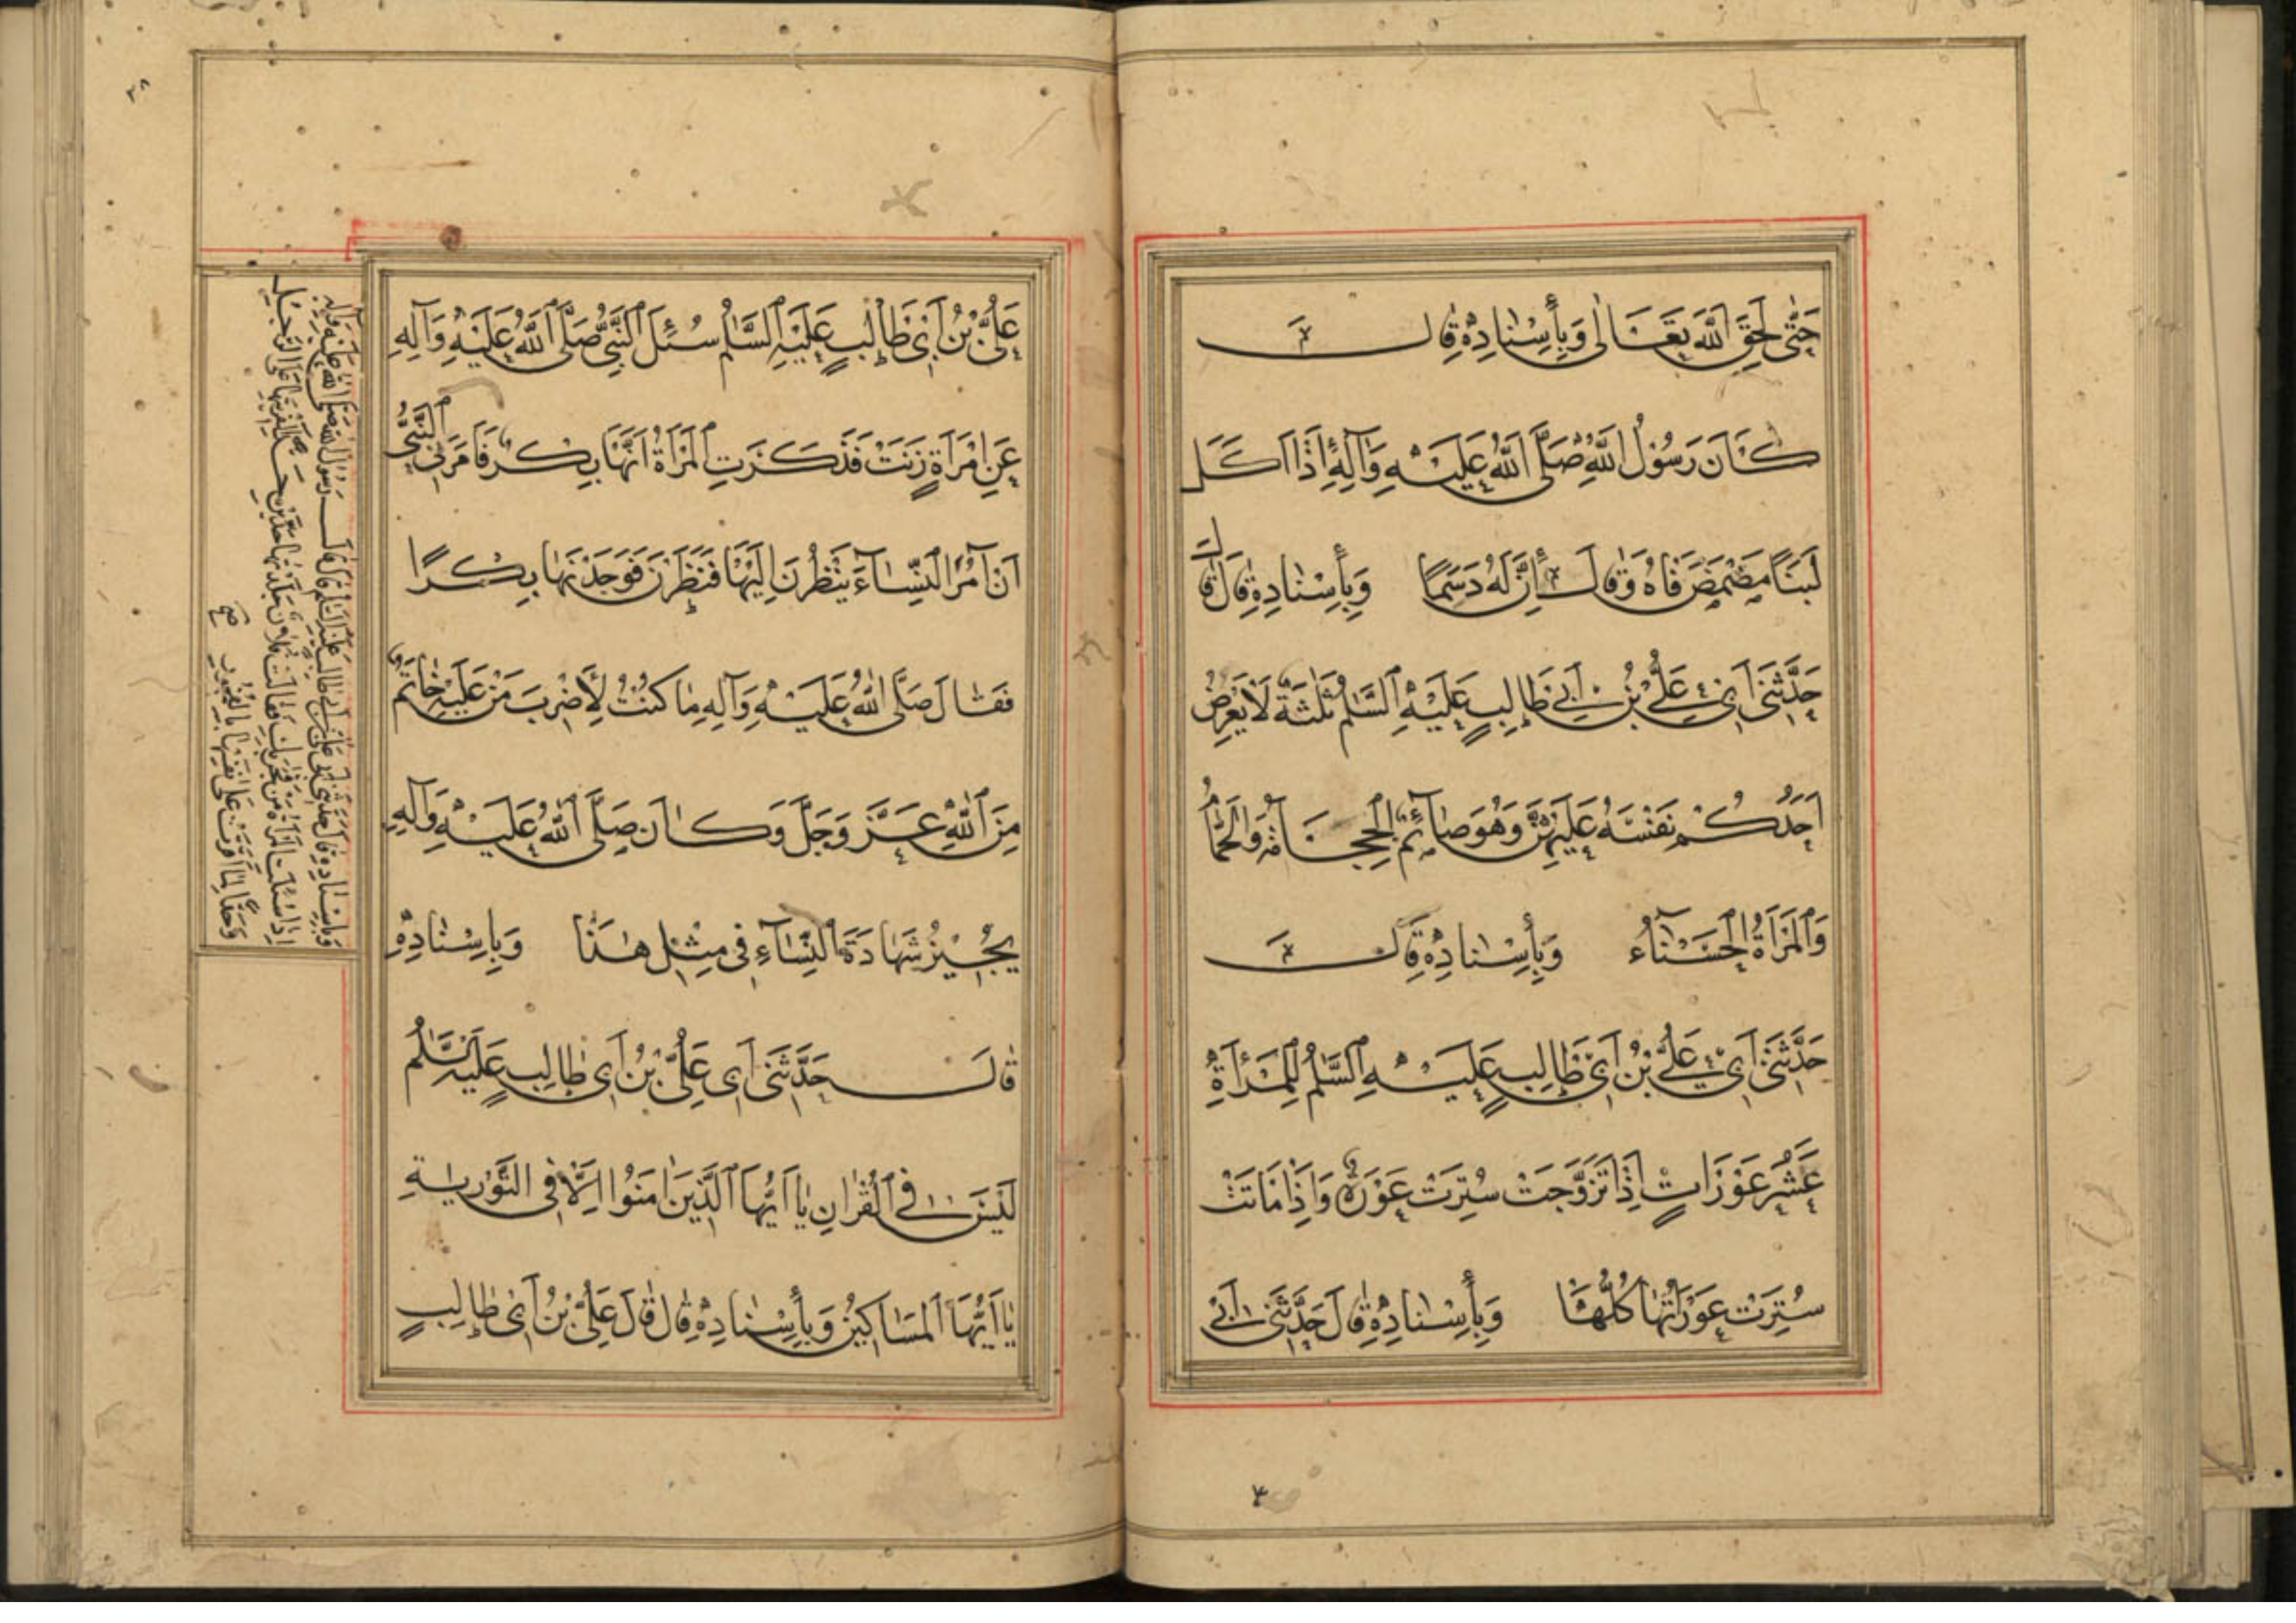 حَتّٰى لَحِقَ اللّٰهَ تَعَالٰى وَبِأِسْنَادِهٖ قَالَ
كَانَ رَسُوْلُ اللّٰهِ صَلَّى اللّٰهُ عَلَيْهِ وَآلِهِ إِذَا اَكَلَ
لَبَنًا مَضْمَضَ فَاهُ وَقَالَ إِنَّ لَهُ دَسَمًا وَبِأِسْنَادِهِ قَالَ قَالَ
حَدَّثَنِي اَبِي عَلِيُّ بْنُ اَبِي طَالِبٍ عَلَيْهِ السَّلٰمُ ثَلٰثَةٌ لَا يَعْرِضُ
اَحَدُكُمْ نَفْسَهُ عَلَيْهِنَّ وَهُوَ صَائِمٌ الْحِجَامَةُ وَالْحَمَّامُ
وَالْمَرْأَةُ الْحَسْنَآءُ وَبِأِسْنَادِهِ قَالَ
حَدَّثَنِي اَبِي عَلِيُّ بْنُ اَبِي طَالِبٍ عَلَيْهِ السَّلٰمُ لِلْمَرْأَةِ
عَشْرُ عَوْرَاتٍ اِذَا تَزَوَّجَتْ سُتِرَتْ عَوْرَةٌ وَاِذَا مَاتَتْ
سُتِرَتْ عَوْرَاتُهَا كُلُّهَا وَبِأِسْنَادِهِ قَالَ حَدَّثَنِي اَبِي
٣٨
عَلِيُّ بْنُ اَبِي طَالِبٍ عَلَيْهِ السَّلٰمُ سُئِلَ النَّبِيُّ صَلَّى اللّٰهُ عَلَيْهِ وَآلِهِ
عَنِ امْرَأَةٍ زَنَتْ فَذَكَرَتِ الْمَرْأَةُ اَنَّهَا بِكْرٌ فَاَمَرَنِي النَّبِيُّ
اَنْ آمُرَ النِّسَآءَ يَنْظُرْنَ اِلَيْهَا فَنَظَرْنَ فَوَجَدْنَهَا بِكْرًا
فَقَالَ صَلَّى اللّٰهُ عَلَيْهِ وَآلِهِ مَا كُنْتُ لِأَضْرِبَ مَنْ عَلَيْهِ خَاتَمٌ
مِنَ اللّٰهِ عَزَّ وَجَلَّ وَكَانَ صَلَّى اللّٰهُ عَلَيْهِ وَآلِهِ
يُجِيْزُ شَهَادَةَ النِّسَآءِ فِي مِثْلِ هٰذَا وَبِاِسْنَادِهِ
قَالَ حَدَّثَنِي اَبِي عَلِيُّ بْنُ اَبِي طَالِبٍ عَلَيْهِ السَّلٰمُ
لَيْسَ فِي الْقُرْاٰنِ يَا اَيُّهَا الَّذِيْنَ اٰمَنُوا اِلَّا فِي التَّوْرٰيةِ
يَا اَيُّهَا الْمَسَاكِيْنُ وَبِأِسْنَادِهِ قَالَ قَالَ عَلِيُّ بْنُ اَبِي طَالِبٍ
وَبِاِسْنَادِهِ قَالَ حَدَّثَنِي اَبِي عَلِيُّ بْنُ اَبِي طَالِبٍ عَلَيْهِ السَّلٰمُ قَالَ قَالَ رَسُوْلُ اللّٰهِ صَلَّى اللّٰهُ عَلَيْهِ وَآلِهِ
اِذَا سُئِلَتِ الْمَرْأَةُ مَنْ فَجَرَ بِكِ فَقَالَتْ فُلَانٌ جَلَدْتَهَا حَدَّيْنِ حَدًّا لِفِرْيَتِهَا عَلَى الرَّجُلِ
وَحَدًّا لِمَا اَقَرَّتْ عَلٰى نَفْسِهَا بِالْفُجُوْرِ صح